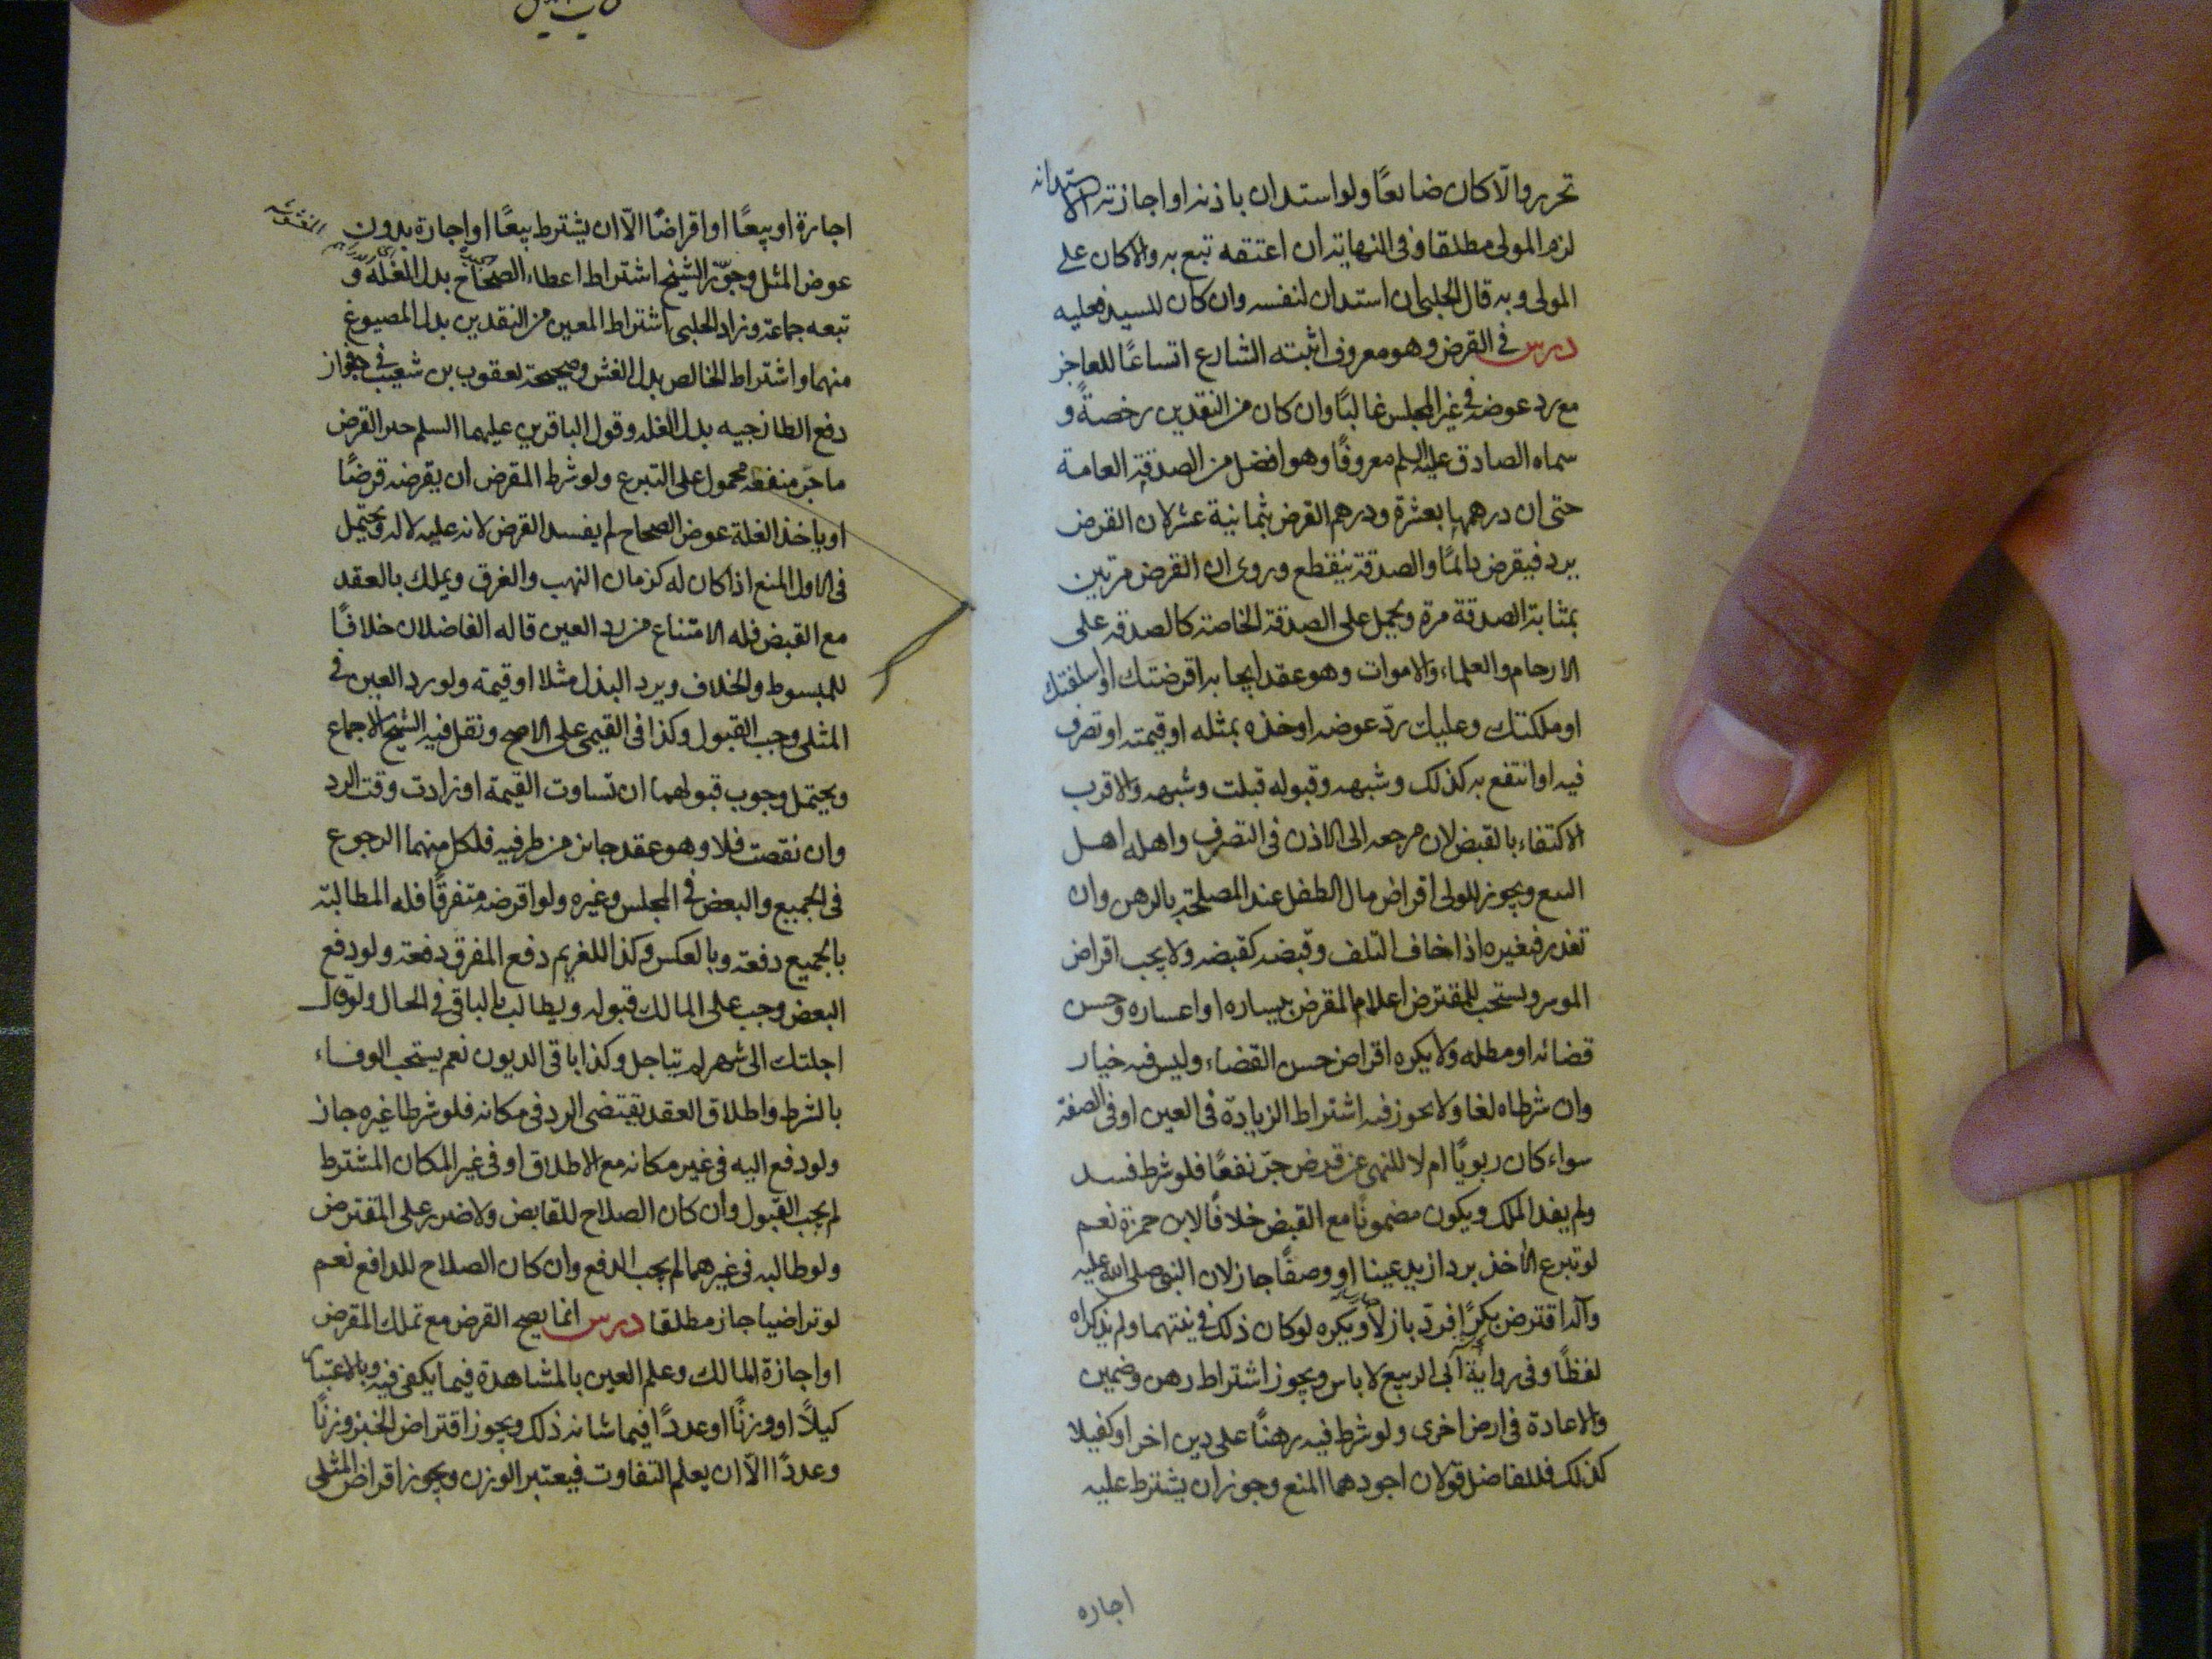 تحرير والّا كان ضائعًا ولو استدان باذنه او اجازته الاستدانه
لزم المولى مطلقا وفى النهايه ان اعتقه تبع به والا كان على
المولى وبه قال الحلبى ان استدان لنفسه وان كان للسيد فعليه
درس فى القرض وهو معروف اثبته الشارع امتاعًا للعاجز
مع رد عوضه فى غير المجلس غالبًا وان كان من النقدين رخصةً و
سماه الصادق عليه السلم معروفًا وهو افضل من الصدقة العامة
حتى ان درهمها بعشرة ودرهم القرض بثمانية عشر لان القرض
يرد فيقرض دائمًا والصدقة تنقطع وروى ان القرض مرتين
بمثابة الصدقة مرة ويحمل على الصدقة الخاصة كالصدقة على
الارحام والعلماء والاموات وهو عقد ايجابه اقرضتك او اسلفتك
او ملكتك وعليك ردّ عوضه او خذه بمثله او قيمته او تصرف
فيه او انتفع به كذلك وشبهه وقبوله قبلت وشبهه والاقرب
الاكتفاء بالقبض لان مرجعه الى الاذن فى التصرف واهله اهل
البيع ويجوز للولى اقراض مال الطفل عند المصلحة بالرهن وان
تعذر فبغيره اذا خاف التلف وقبضه كقبضه ولا يجب اقراض
الموسر ويستحب للمقترض اعلام المقرض بيساره او اعساره وحسن
قضائه او مطله ولا يكره اقراض حسن القضاء وليس فيه خيار
وان شرطاه لغا ولا يجوز فيه اشتراط الزيادة فى العين او فى الصفة
سواء كان ربويًا ام لا للنهى عن قرض جرّ نفعًا فلو شرط فسد
ولم يفد الملك ويكون مضمونًا مع القبض خلافًا لابن حمزة نعم
لو تبرع الآخذ برد ازيد عينا او وصفًا جاز لان النبى صلى الله عليه
وآله اقترض بكرًا فردّ بازلًا ويكره لو كان ذلك فى نيتهما ولم يذكراه
لفظًا وفى رواية ابى الربيع لا باس ويجوز اشتراط رهن وضمين
والاعادة فى ارض اخرى ولو شرط فيه رهنًا على دين اخر او كفيلا
كذلك فللفاضل قولان اجودهما المنع وجوز ان يشترط عليه
اجاره
اجارة او بيعًا او اقراضًا الّا ان يشترط بيعًا او اجارة بدون
عوض المثل وجوّز الشيخ اشتراط اعطاء الصحاح بدل الغلّة و
تبعه جماعة وزاد الحلبى اشتراط المعين من النقدين بدل المصوغ
منهما واشتراط الخالص بدل الغش وصحيحة يعقوب بن شعيب فى جواز
دفع الطازجيه بدل الغله وقول الباقر عليهما السلم خير القرض
ما جرّ منفعة محمول على التبرع ولو شرط المقرض ان يقرضه قرضًا
او ياخذ الغلة عوض الصحاح لم يفسد القرض لانه عليه لا له ويحتمل
فى الاول المنع اذا كان له كزمان النهب والغرق ويملك بالعقد
مع القبض فله الامتناع من رد العين قاله الفاضلان خلافًا
للمبسوط والخلاف ويرد البذل مثلا او قيمته ولو رد العين فى
المثلى وجب القبول وكذا فى القيمى على الاصح ونقل فيه الشيخ الاجماع
ويحتمل وجوب قبولهما ان تساوت القيمة او زادت وقت الرد
وان نقصت فلا وهو عقد جائز من طرفيه فلكل منهما الرجوع
فى الجميع والبعض فى المجلس وغيره ولو اقرضه متفرقًا فله المطالبة
بالجميع دفعة وبالعكس وكذا للغريم دفع المفرق دفعة ولو دفع
البعض وجب على المالك قبوله ويطالب بالباقى فى الحال ولو قال
اجلتك الى شهر لم يتاجل وكذا باقى الديون نعم يستحب الوفاء
بالشرط واطلاق العقد يقتضى الرد فى مكانه فلو شرطا غيره جاز
ولو دفع اليه فى غير مكانه مع الاطلاق او فى غير المكان المشترط
لم يجب القبول وان كان الصلاح للقابض ولا ضرر على المقترض
ولو طالبه فى غيرهما لم يجب الدفع وان كان الصلاح للدافع نعم
لو تراضيا جاز مطلقا درس انما يصح القرض مع تملك المقرض
او اجازة المالك وعلم العين بالمشاهدة فيما يكفى فيه وبالاعتبار
كيلًا او وزنًا او عددًا فيما شانه ذلك ويجوز اقتراض الخبز وزنًا
وعددًا الّا ان يعلم التفاوت فيعتبر الوزن ويجوز اقراض المثلى